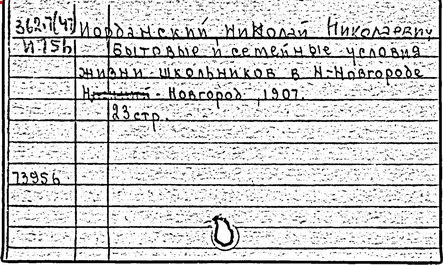 362.7(47) Иорданский, Николай Николаевич
И75ь Бытовые и семейные условия
жизни школьников в Н-Новгороде
Н‑Новгород, 1907.
23 стр.
73956